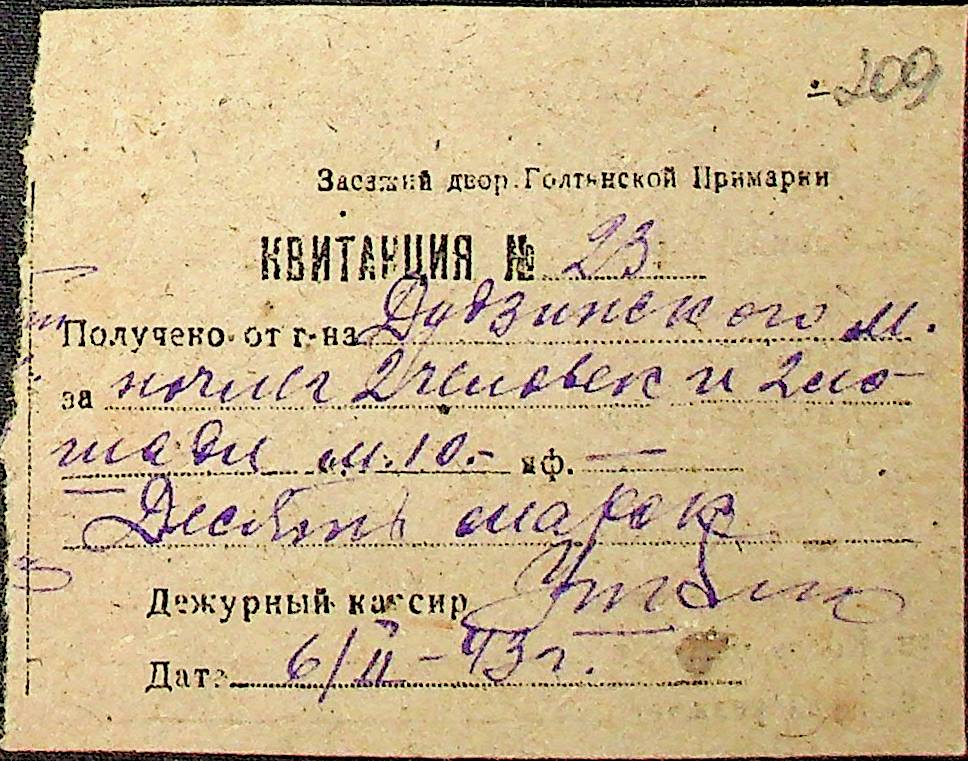 209
Заезжий двор Голтянской Примарии
КВИТАНЦИЯ № 23
Получено от г-на Дудзинского М.
за ночлег 2 человек и 2 ло-
шади м. 10.- пф. —
Десять марок
Дежурный кассир
Дата 6/II-43 г.